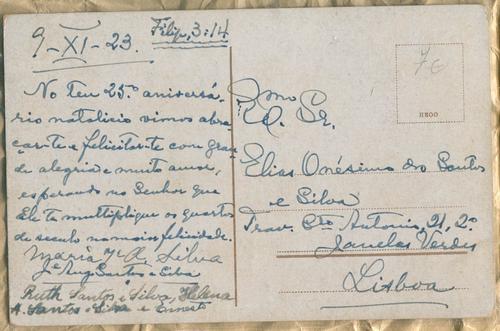 9-XI-23.
Filip, 3:14
No teu 25º. aniversá-
rio natalicio vimos abra-
çar-te e felicitar-te com gran-
de alegria e muito amor,
esperando no Senhor que
Ele ta multiplique os quartos
de seculo na maior felicidade.
Maria Jª R. Silva
Jª Aug. Santos e Silva
Ruth Santos e Silva, Helena
A. Santos e Silva e Ernesto
7€
HEOO
Exmo
Sr.
Elias Onésimo dos Santos
e Silva
Trav. Stº Antonio, 21, 2º.
Janelas Verdes
Lisboa